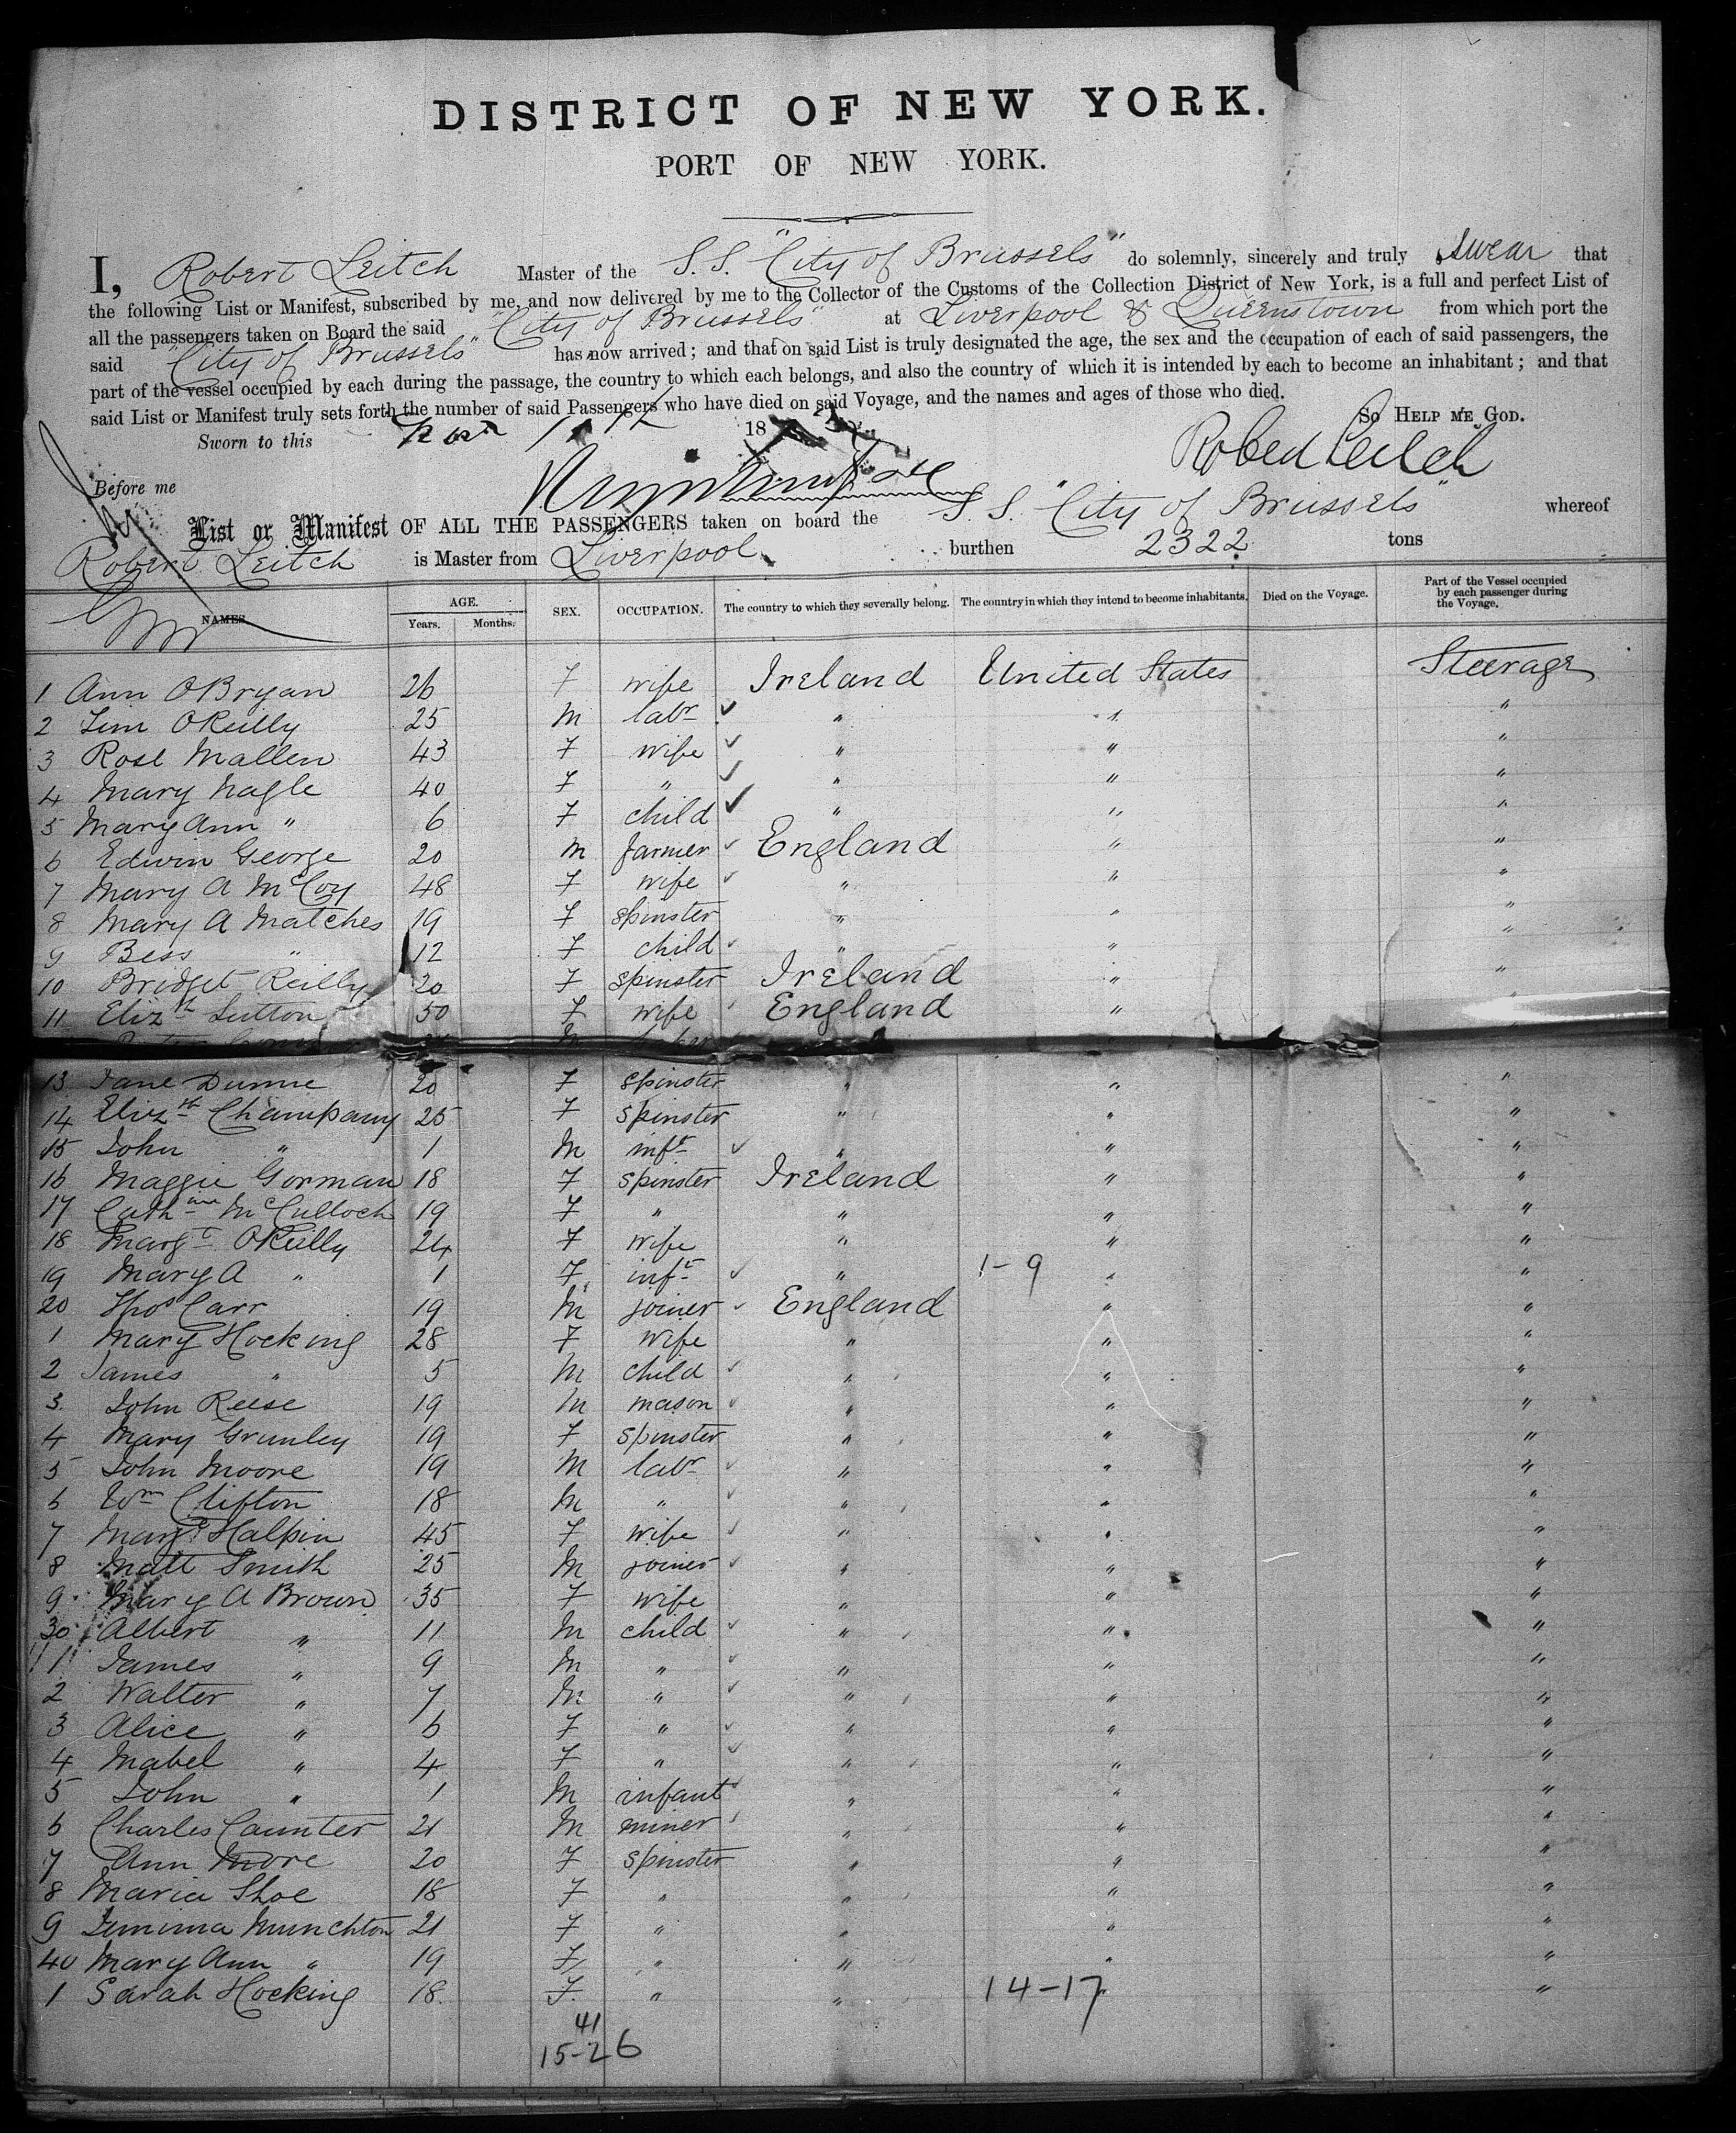 DISTRICT OF NEW YORK.
PORT OF NEW YORK.
I, Robert Leitch Master of the S.S. "City of Brussels" do solemnly, sincerely and truly swear that
the following List or Manifest, subscribed by me, and now delivered by me to the Collector of the Customs of the Collection District of New York, is a full and perfect List of
all the passengers taken on Board the said "City of Brussels" at Liverpool & Queenstown from which port the
said "City of Brussels" has now arrived; and that on said List is truly designated the age, the sex and the occupation of each of said passengers, the
part of the vessel occupied by each during the passage, the country to which each belongs, and also the country of which it is intended by each to become an inhabitant; and that
said List or Manifest truly sets forth the number of said Passengers who have died on said Voyage, and the names and ages of those who died.
So HELP ME GOD.
Sworn to this 18
Robert Leitch
Before me
List or Manifest OF ALL THE PASSENGERS taken on board the S.S. "City of Brussels" whereof
Robert Leitch is Master from Liverpool burthen 2322 tons
NAMES AGE. Years. Months. SEX. OCCUPATION. The country to which they severally belong. The country in which they intend to become inhabitants. Died on the Voyage. Part of the Vessel occupied by each passenger during the Voyage.
1 Ann OBryan 26 F wife Ireland United States Steerage
2 Jim OReilly 25 M labr " " "
3 Rose Mallen 43 F wife " " "
4 Mary Nagle 40 F " " " "
5 Mary Ann " 6 F child " " "
6 Edwin George 20 M farmer England " "
7 Mary A McCoy 48 F wife " " "
8 Mary A Matches 19 F spinster " " "
9 Bess " 12 F child " " "
10 Bridget Reilly 20 F spinster Ireland " "
11 Elizth Sutton 50 F wife England " "
M
13 Jane Dunne 20 F spinster " " "
14 Elizth Champany 25 F spinster " " "
15 John " 1 M inft " " "
16 Maggie Gorman 18 F spinster Ireland " "
17 Cathine McCulloch 19 F " " " "
18 Margt OReilly 24 F wife " " "
19 Mary A " 1 F inft " 1-9 " "
20 Thos Carr 19 M joiner England " "
1 Mary Hocking 28 F wife " " "
2 James " 5 M child " " "
3 John Reese 19 M mason " " "
4 Mary Grunley 19 F spinster " " "
5 John Moore 19 M labr " " "
6 Wm Clifton 18 M " " " "
7 Margt Halpin 45 F wife " " "
8 Matt Smith 25 M joiner " " "
9 Mary A Brown 35 F wife " " "
30 Albert " 11 M child " " "
1 James " 9 M " " " "
2 Walter " 7 M " " " "
3 Alice " 6 F " " " "
4 Mabel " 4 F " " " "
5 John " 1 M infant " " "
6 Charles Caunter 21 M miner " " "
7 Ann More 20 F spinster " " "
8 Maria Shoe 18 F " " " "
9 Jemima Munchton 21 F " " " "
40 Mary Ann " 19 F " " " "
1 Sarah Hocking 18 F " " 14-17 " "
41
15-26